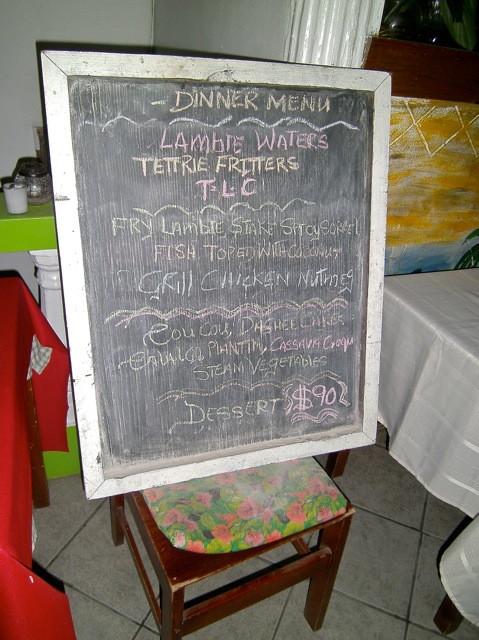 - DINNER MENU
LAMBIE WATERS
TETTRIE FRITTERS
T-L-C
FRY LAMBIE STAKE
FISH TOPED WITH COCONUT
GRILL CHICKEN NUTMEG
COU COU, DASHEE CAKES
PLANTIN, CASSAVA
STEAM VEGETABLES
DESSERT $90